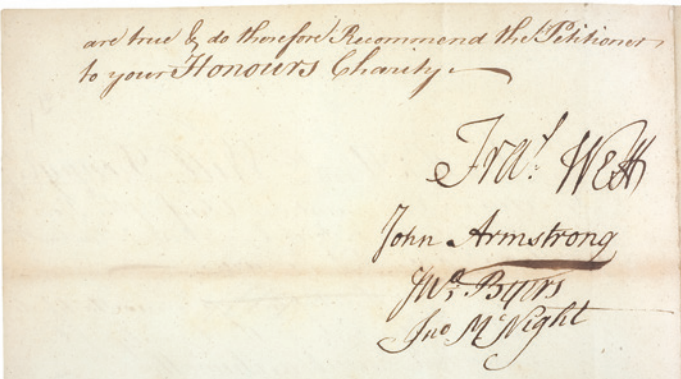 are true & do therefore Recommend the Petitioner
to your Honours Charity
Fra.s West
John Armstrong
Jno. Byers
Jno McNight